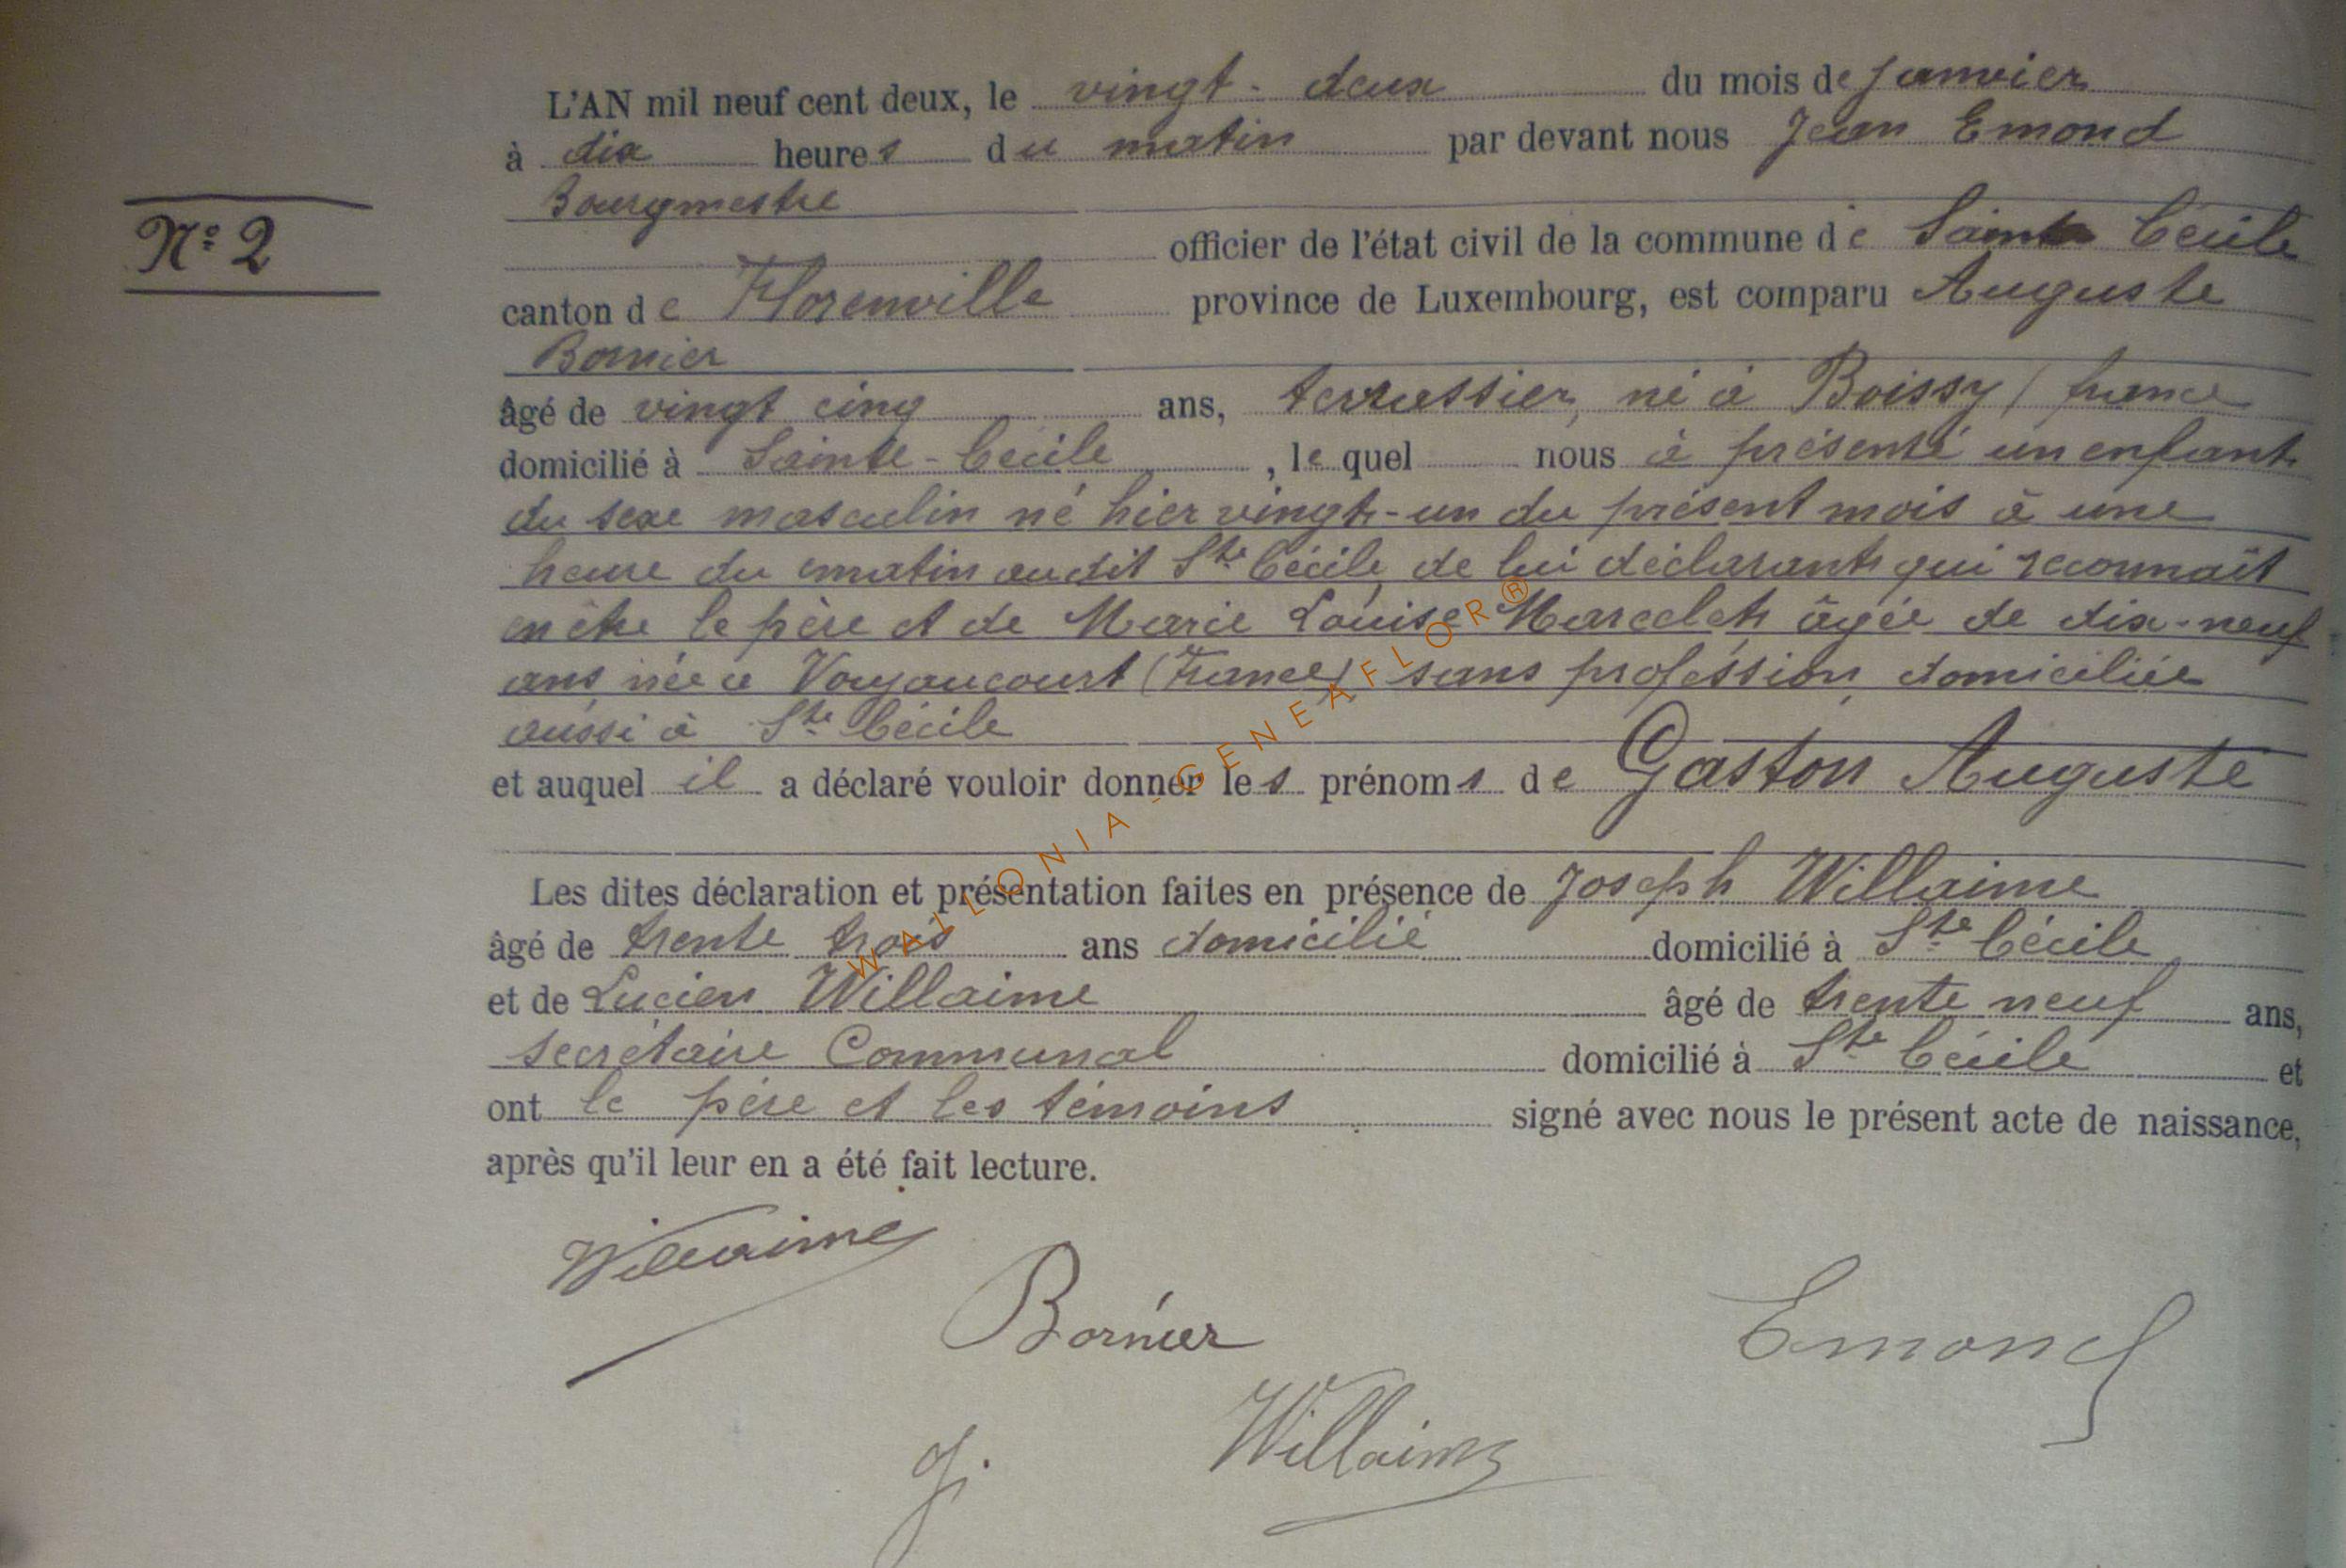 L'AN mil neuf cent deux, le vingt-deux du mois de Janvier
à dix heures du matin par devant nous Jean Emond
Bourgmestre
N° 2
officier de l'état civil de la commune de Sainte Cécile
canton de Florenville province de Luxembourg, est comparu Auguste
Bornier
âgé de vingt cinq ans, terrassier, né à Boissy (france
domicilié à Sainte-Cécile, lequel nous à présenté un enfant
du sexe masculin né hier vingt-un du présent mois à une
heure du matin audit Ste Cécile, de lui déclarant qui reconnaît
en être le père et de Marie Louise Marcelet âgée de dix-neuf
ans née à Voujaucourt (France) sans profession, domiciliée
aussi à Ste Cécile
et auquel il a déclaré vouloir donner les prénoms de Gaston Auguste
Les dites déclaration et présentation faites en présence de Joseph Willaime
âgé de trente trois ans domicilié domicilié à Ste Cécile
et de Lucien Willaime âgé de trente neuf ans,
secrétaire Communal domicilié à Ste Cécile et
ont le père et les témoins signé avec nous le présent acte de naissance,
après qu'il leur en a été fait lecture.
Willaime
Bornier
Emond
J. Willaime
WALLONIA-GENEAFLOR®